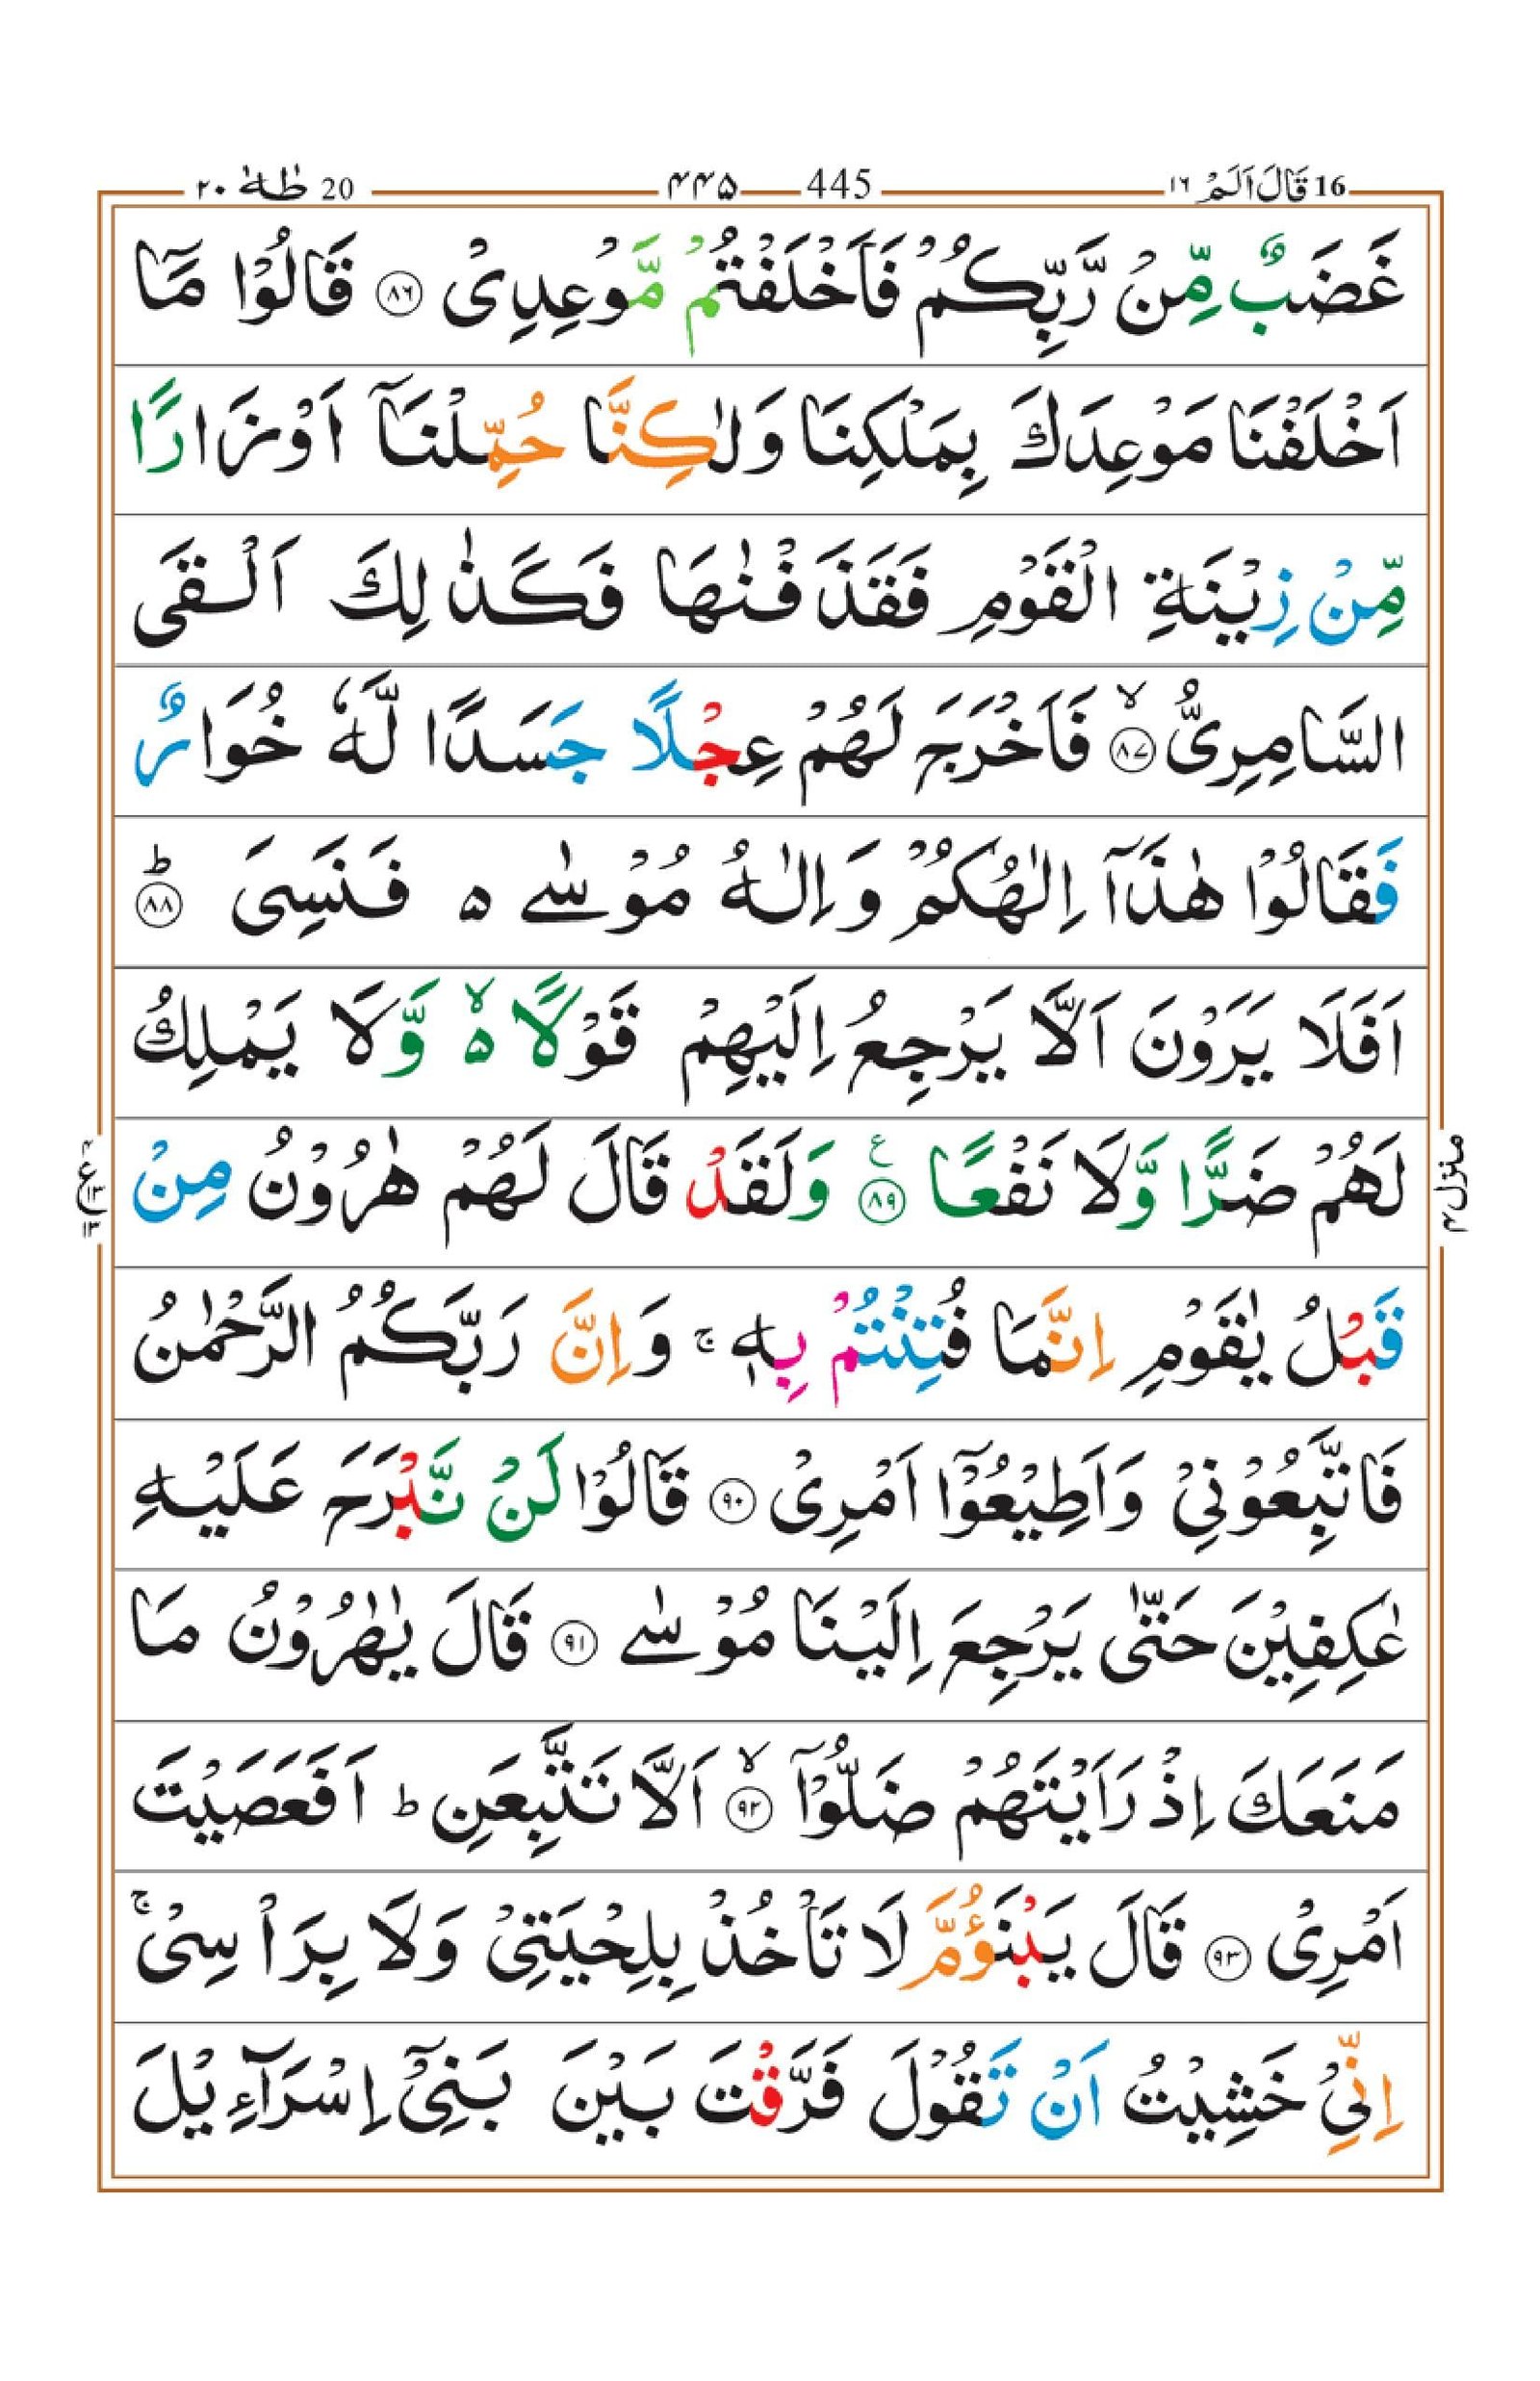 16 قَالَ اَلَمۡ ١٦ 445 ۴۴۵ 20 طٰهٰ ٢٠
غَضَبٌ مِّنۡ رَّبِّكُمۡ فَاَخۡلَفۡتُمۡ مَّوۡعِدِىۡ ﴿۸۶﴾ قَالُوۡا مَاۤ
اَخۡلَفۡنَا مَوۡعِدَكَ بِمَلۡكِنَا وَلٰكِنَّا حُمِّلۡنَاۤ اَوۡزَارًا
مِّنۡ زِيۡنَةِ الۡقَوۡمِ فَقَذَفۡنٰهَا فَكَذٰلِكَ اَلۡقَى
السَّامِرِىُّ ۙ‏﴿۸۷﴾ فَاَخۡرَجَ لَهُمۡ عِجۡلًا جَسَدًا لَّهٗ خُوَارٌ
فَقَالُوۡا هٰذَاۤ اِلٰهُكُمۡ وَاِلٰهُ مُوۡسٰى ه فَنَسِىَ ؕ‏﴿۸۸﴾
اَفَلَا يَرَوۡنَ اَلَّا يَرۡجِعُ اِلَيۡهِمۡ قَوۡلًا ۙ ه وَّلَا يَمۡلِكُ
لَهُمۡ ضَرًّا وَّلَا نَفۡعًا ﴿۸۹﴾ ع وَلَقَدۡ قَالَ لَهُمۡ هٰرُوۡنُ مِنۡ
منزل ۴
قَبۡلُ يٰقَوۡمِ اِنَّمَا فُتِنۡتُمۡ بِهٖ ۚ وَاِنَّ رَبَّكُمُ الرَّحۡمٰنُ
فَاتَّبِعُوۡنِىۡ وَاَطِيۡعُوۡۤا اَمۡرِىۡ ﴿۹۰﴾ قَالُوۡا لَنۡ نَّبۡرَحَ عَلَيۡهِ
عٰكِفِيۡنَ حَتّٰى يَرۡجِعَ اِلَيۡنَا مُوۡسٰى ﴿۹۱﴾ قَالَ يٰهٰرُوۡنُ مَا
مَنَعَكَ اِذۡ رَاَيۡتَهُمۡ ضَلُّوۡۤا ۙ‏﴿۹۲﴾ اَلَّا تَتَّبِعَنِ ؕ اَفَعَصَيۡتَ
اَمۡرِىۡ ﴿۹۳﴾ قَالَ يَبۡنَؤُمَّ لَا تَاۡخُذۡ بِلِحۡيَتِىۡ وَلَا بِرَاۡسِىۡ ۚ
اِنِّىۡ خَشِيۡتُ اَنۡ تَقُوۡلَ فَرَّقۡتَ بَيۡنَ بَنِىۡۤ اِسۡرَآءِيۡلَ